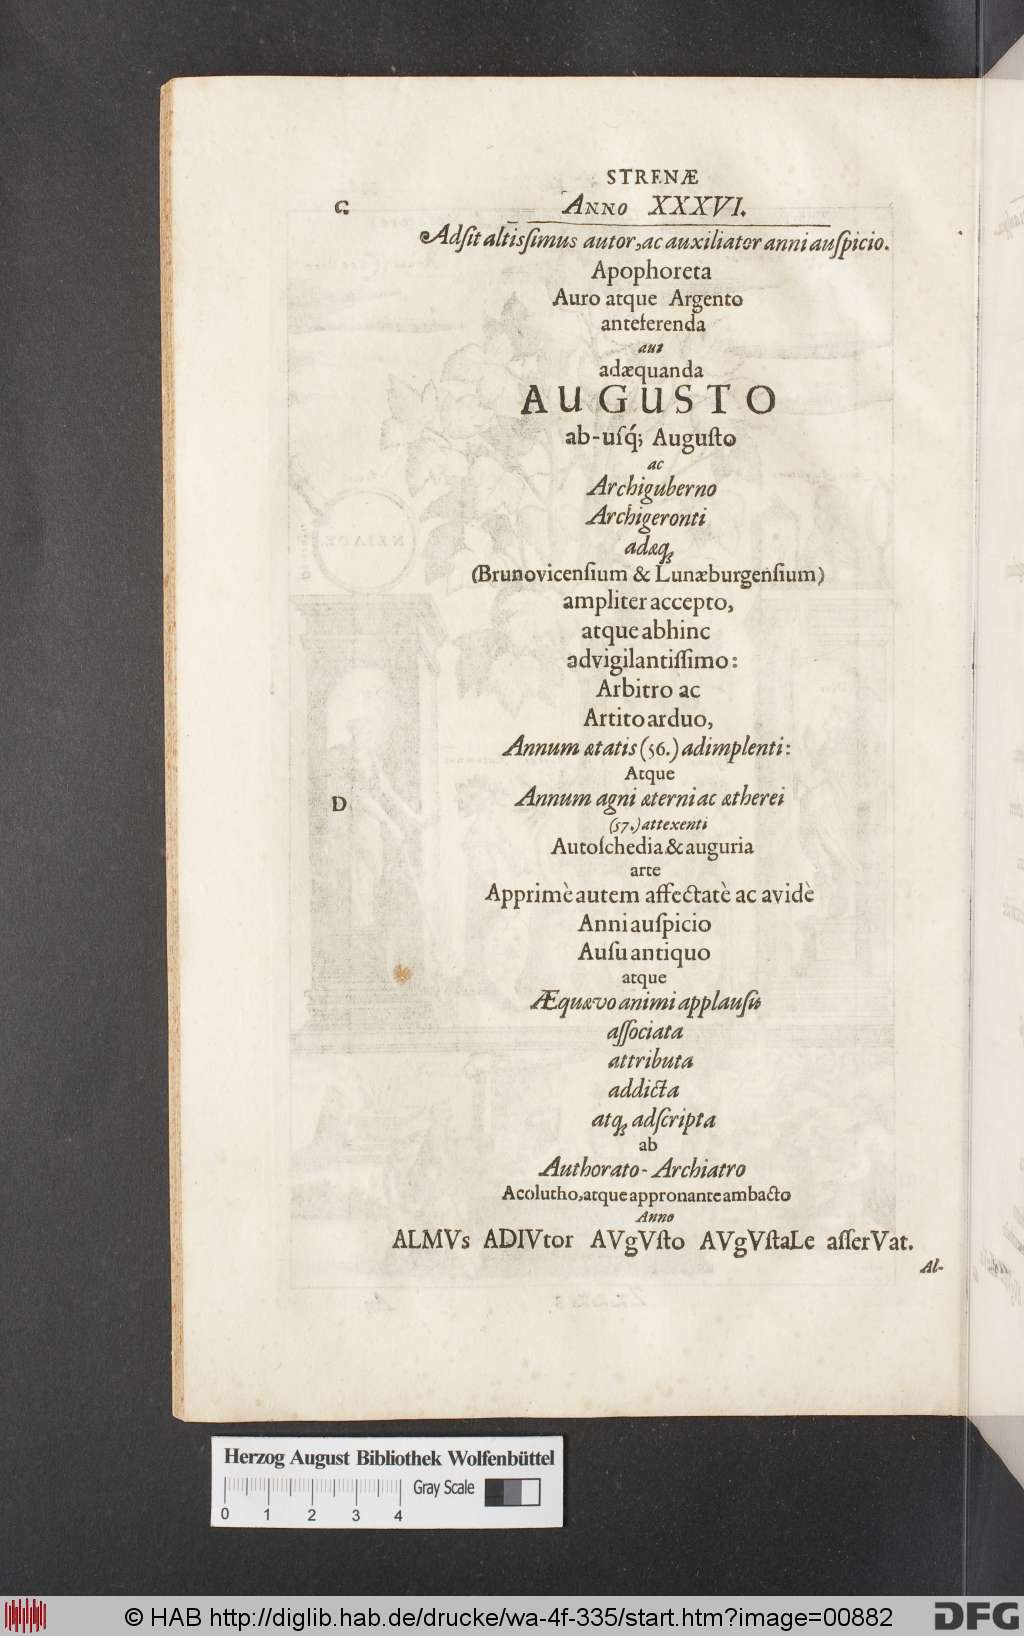 STRENÆ
C.
ANNO XXXVI.
Adſit altiſſimus autor, ac auxiliator anni auſpicio.
Apophoreta
Auro atque Argento
anteferenda
aut
adæquanda
AUGUSTO
ab-uſq́; Auguſto
ac
Archiguberno
Archigeronti
adæq;
(Brunovicenſium & Lunæburgenſium)
ampliter accepto,
atque abhinc
advigilantiſſimo:
Arbitro ac
Artito arduo,
Annum ætatis (56.) adimplenti:
Atque
D
Annum agni æterni ac ætherei
(57.) attexenti
Autoſchedia & auguria
arte
Apprimè autem affectatè ac avidè
Anni auſpicio
Auſu antiquo
atque
Æquævo animi applauſu
aſſociata
attributa
addicta
atq; adſcripta
ab
Authorato-Archiatro
Acolutho, atque appronante ambacto
Anno
ALMVs ADIVtor AVgVſto AVgVſtaLe aſſerVat.
Al-
Herzog August Bibliothek Wolfenbüttel
Gray Scale
0 1 2 3 4
© HAB http://diglib.hab.de/drucke/wa-4f-335/start.htm?image=00882
DFG